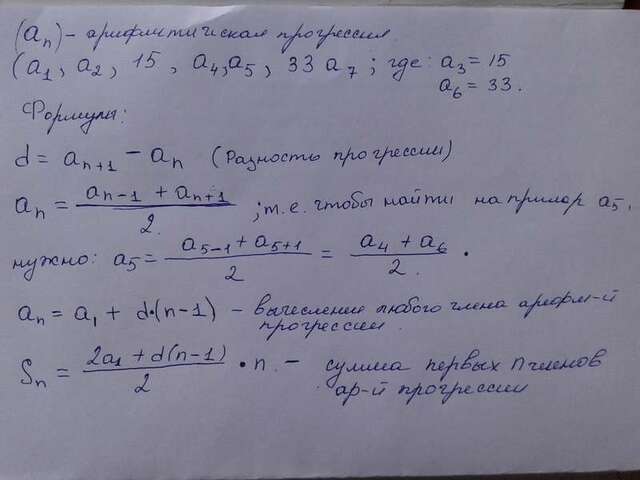 (aₙ) - арифметическая прогрессия.
(a₁, a₂, 15, a₄, a₅, 33 a₇; где: a₃ = 15
a₆ = 33.
Формулы:
d = aₙ₊₁ - aₙ (Разность прогрессии)
aₙ = (aₙ₋₁ + aₙ₊₁)/2. ; т.е. чтобы найти например a₅,
нужно: a₅ = (a₅₋₁ + a₅₊₁)/2 = (a₄ + a₆)/2.
aₙ = a₁ + d·(n-1) - вычесление любого члена арифм-й
прогрессии.
Sₙ = (2a₁ + d(n-1))/2 · n. - сумма первых n членов
ар-й прогрессии